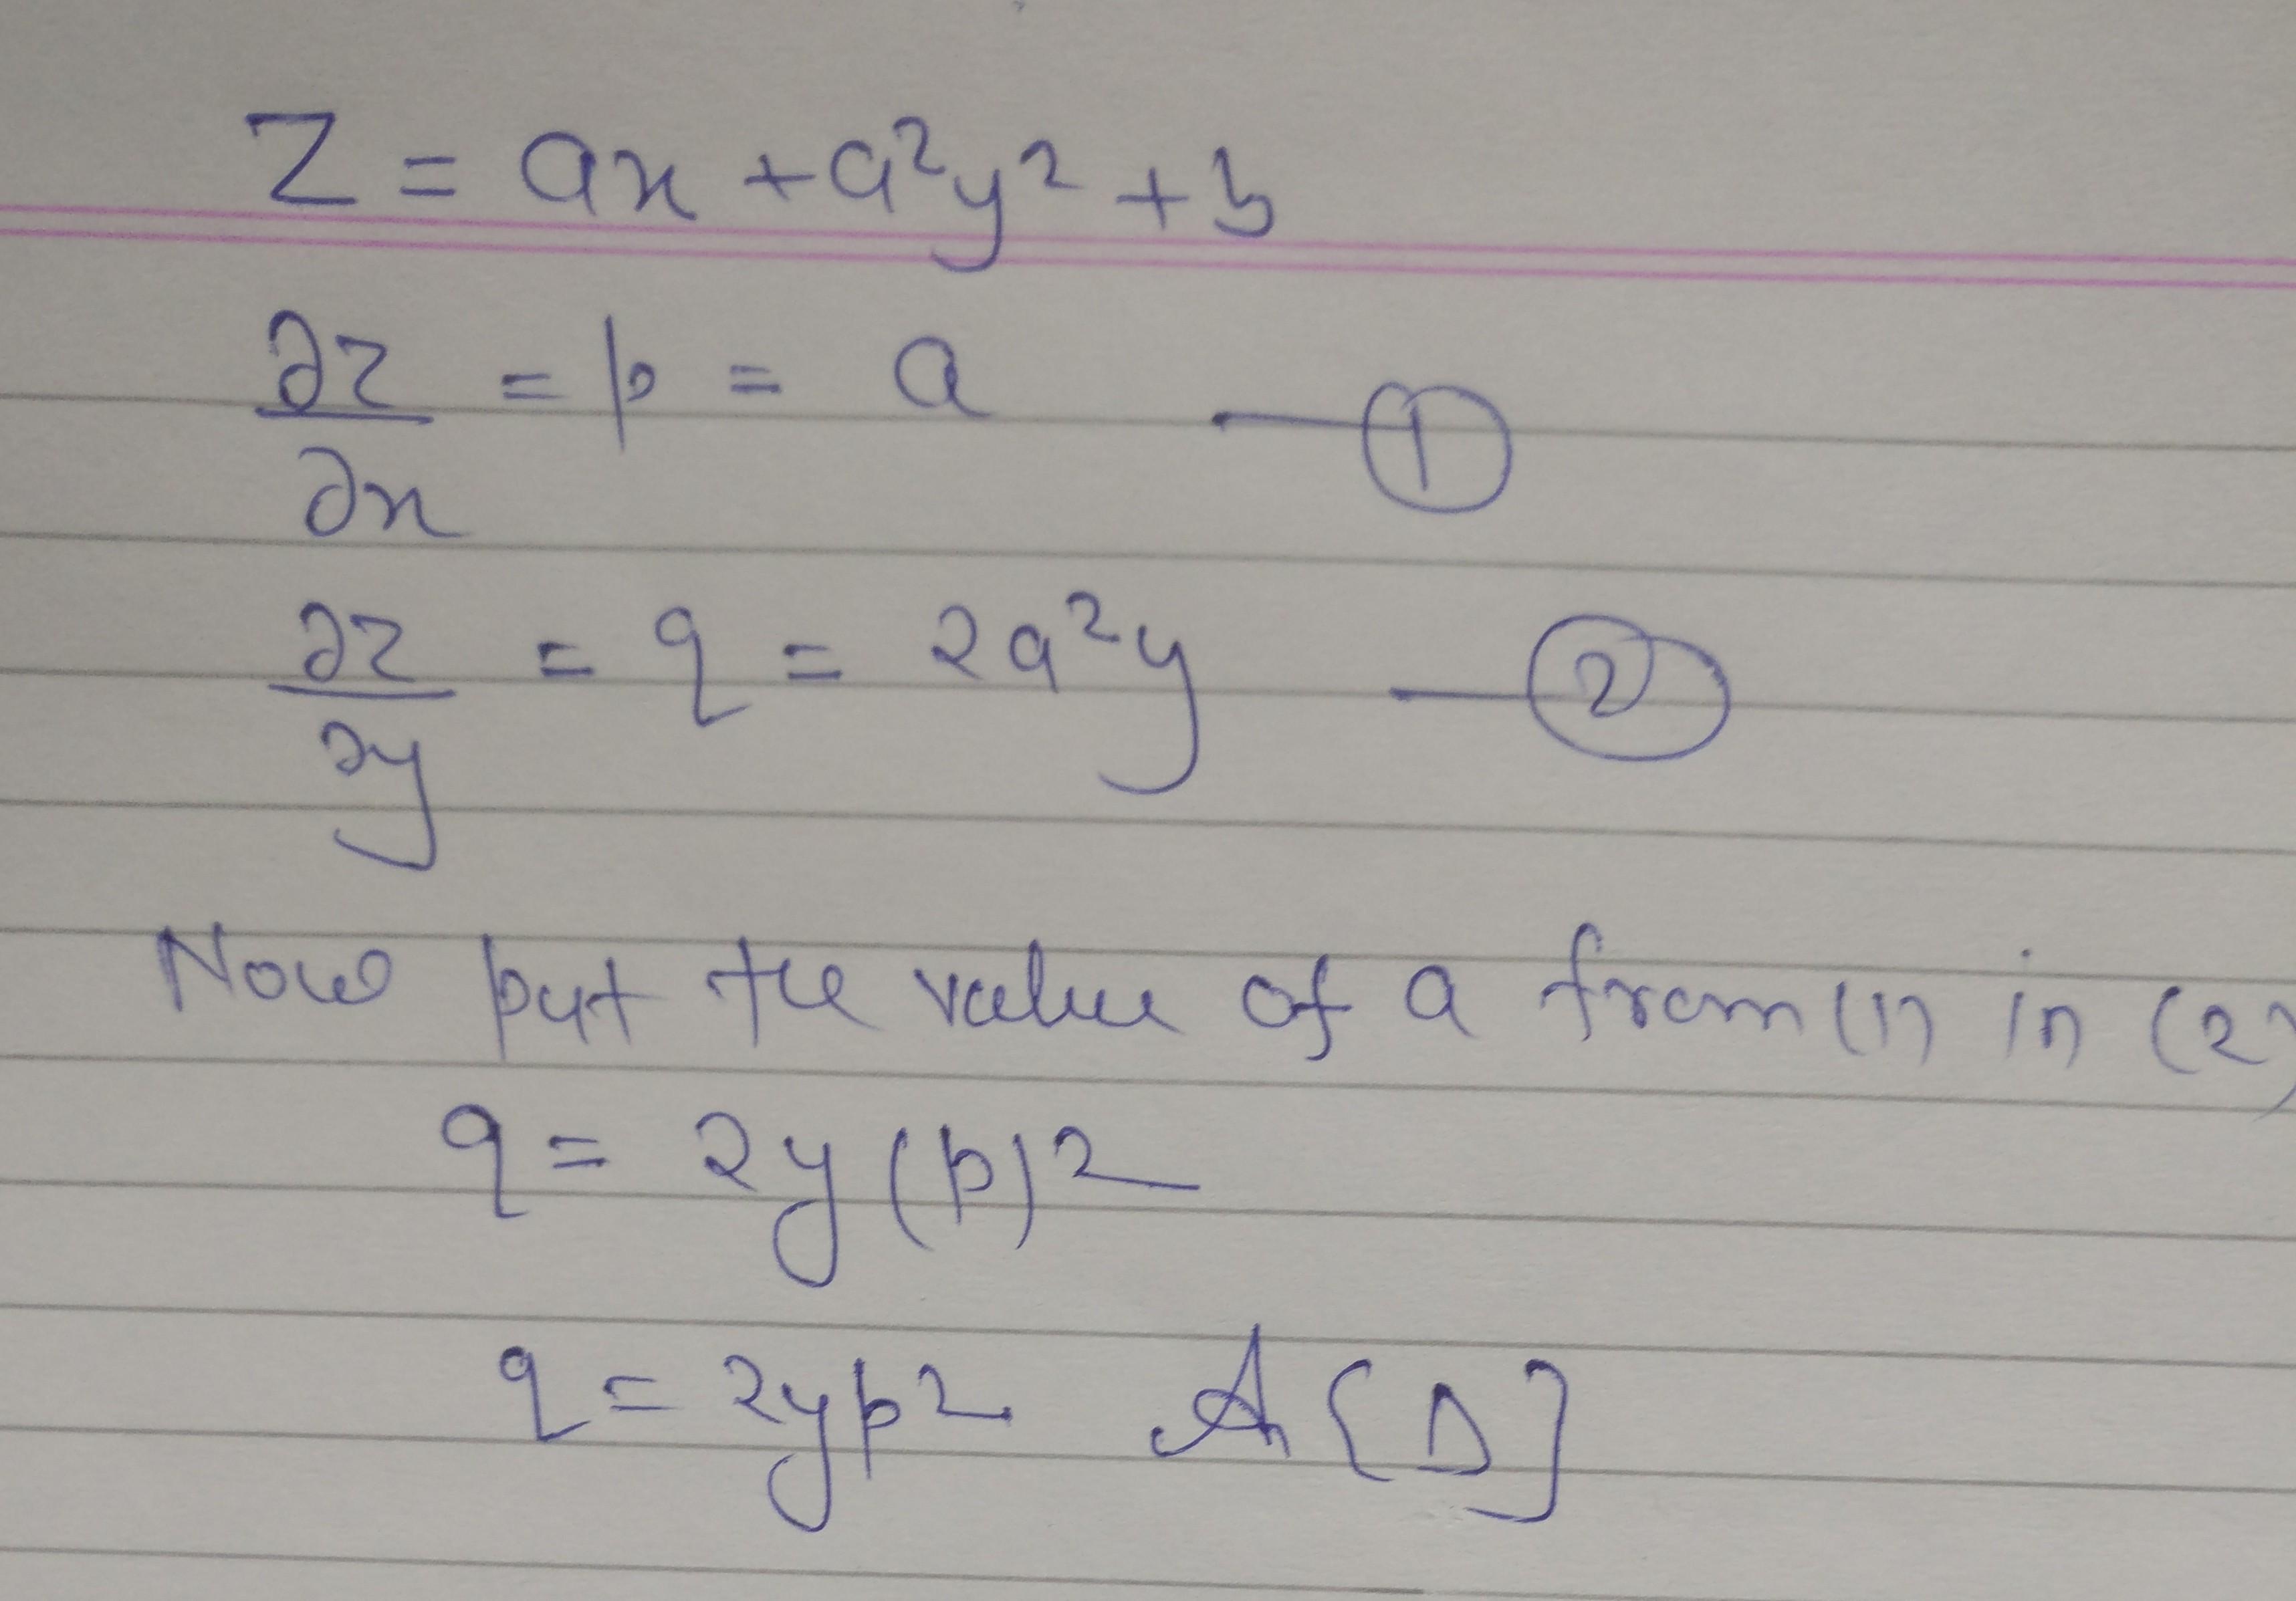 Z = ax + a²y² + b
∂z/∂x = p = a —①
∂z/∂y = q = 2a²y —②
Now put the value of a from (1) in (2)
q = 2y(p)²
q = 2yp² A [D]